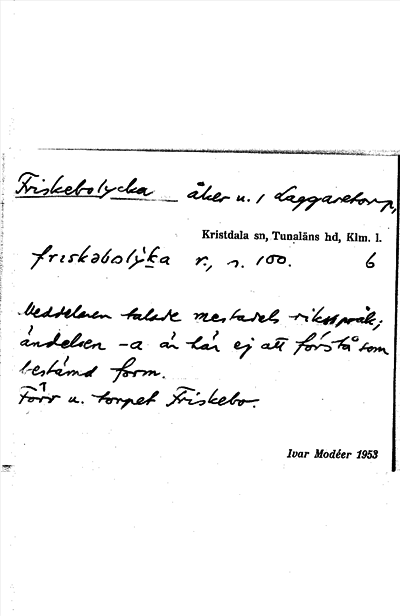 Friskebolycka åker u. 1 Laggaretorp,
Kristdala sn, Tunaläns hd, Klm. l.
friskəbolỳka r., s. 100. 6
Meddelaren talade mestadels riksspråk;
ändelsen -a är här ej att förstå som
bestämd form.
Förr u. torpet Friskebo.
Ivar Modéer 1953